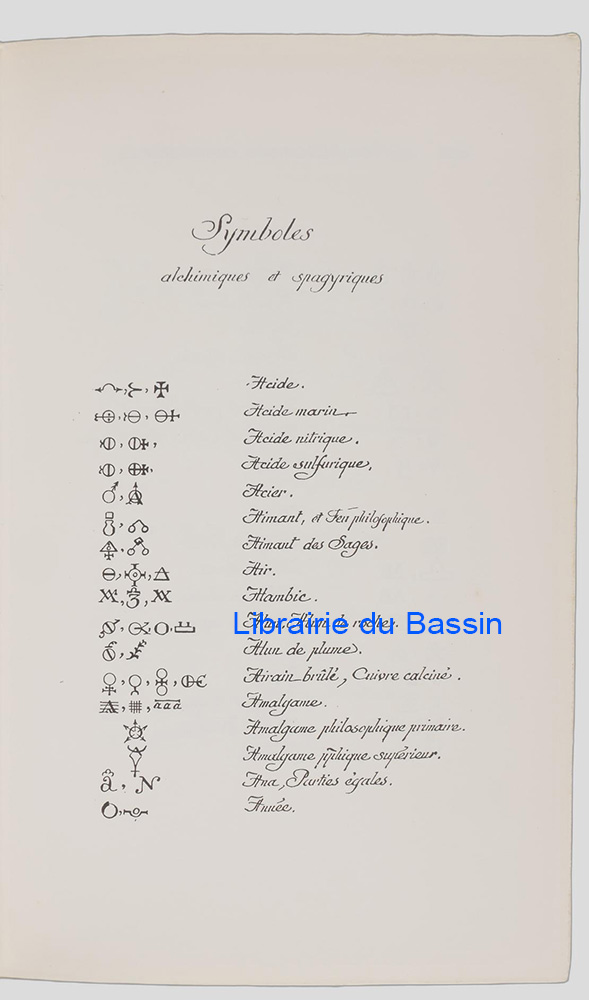 Symboles
alchimiques et spagyriques
Acide.
Acide marin
Acide nitrique.
Acide sulfurique.
Acier.
Aimant, et Feu philosophique.
Aimant des Sages.
Air.
Alambic.
Alun, Alun de roche.
Librairie du Bassin
Alun de plume.
Airain brûlé, Cuivre calciné.
Amalgame.
aaa
Amalgame philosophique primaire.
Amalgame supérieur.
â, N
Ana, Parties égales.
Année.